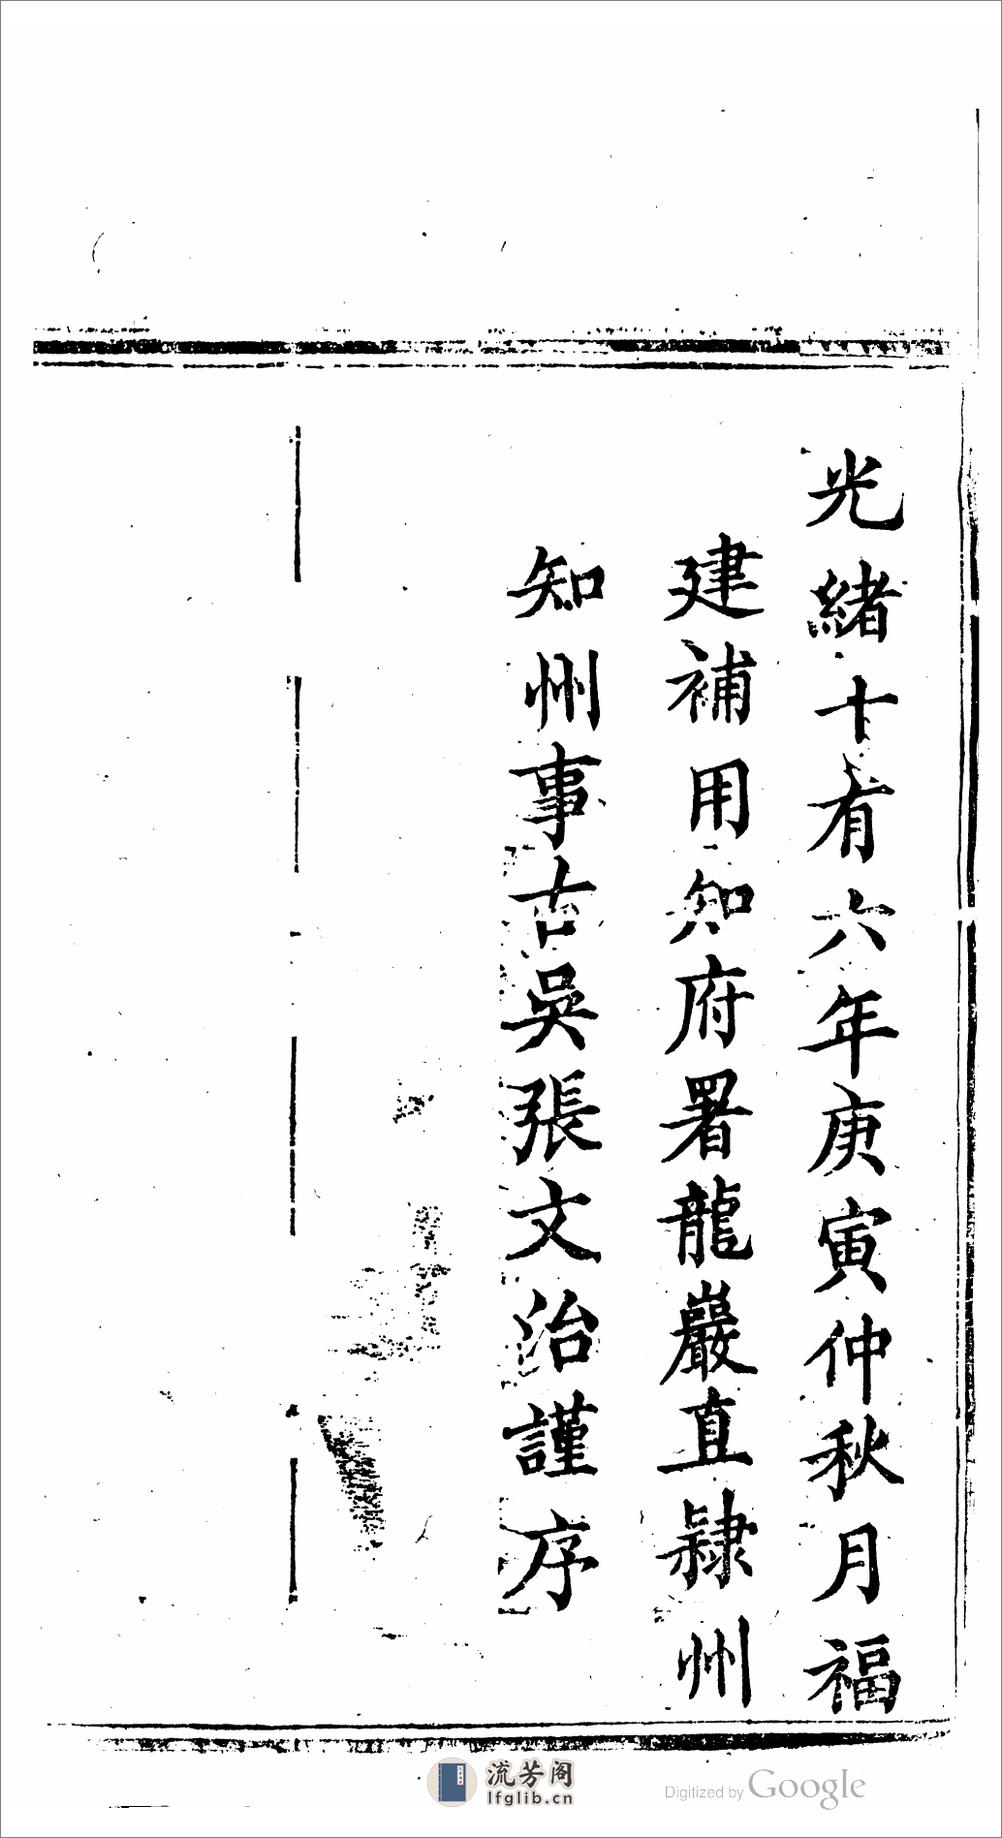 光緒十有六年庚寅仲秋月福
建補用知府署龍巖直隸州
知州事古吳張文治謹序
流芳阁
lfglib.cn
Digitized by Google